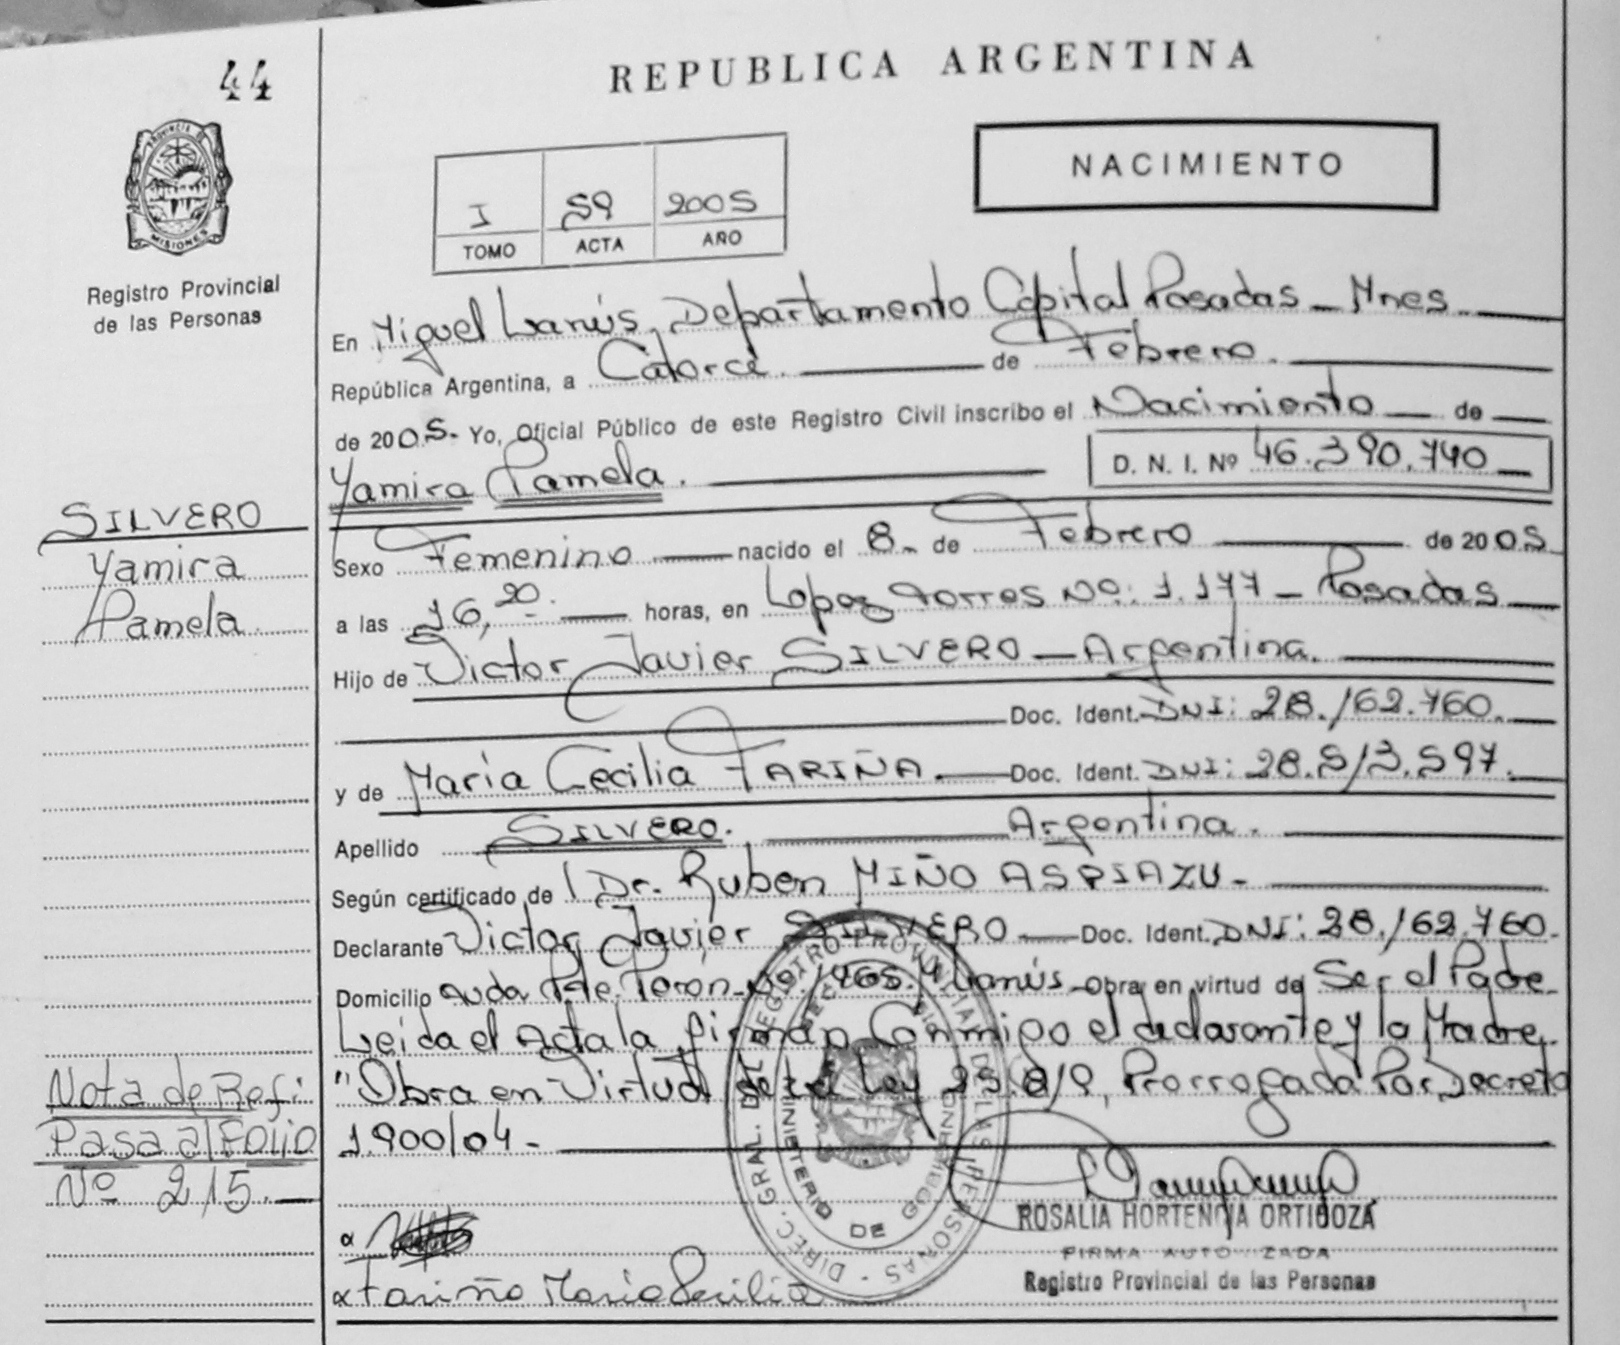 44
REPUBLICA ARGENTINA
PROVINCIA DE MISIONES
Registro Provincial
de las Personas
I 59 2005
TOMO ACTA AÑO
NACIMIENTO
En Miguel Lanús, Departamento Capital Posadas - Mnes.
República Argentina, a Catorce. de Febrero.
de 2005.- Yo, Oficial Público de este Registro Civil inscribo el Nacimiento de
Yamira Pamela. D. N. I. Nº 46.390.740
SILVERO
Yamira
Pamela.
Sexo Femenino nacido el 8.- de Febrero de 2005
a las 16,20. horas, en Lopez Torres Nº: 1.177 - Posadas
Hijo de Victor Javier SILVERO - Argentina.
Doc. Ident. DNI: 28.162.760.
y de María Cecilia FARIÑA. Doc. Ident. DNI: 28.513.597.
Apellido SILVERO. Argentina.
Según certificado de Dr. Ruben MIÑO ASPIAZU-
Declarante Victor Javier SILVERO Doc. Ident. DNI: 28.162.760.
Domicilio Avda Pte. Perón Nº 1465. M. Lanús Obra en virtud de Ser el Padre
Leida el Acta la firman Conmigo el declarante y la Madre.
"Obra en Virtud de la Ley 25.819, Prorrogada Por Decreto
1.900/04-
Nota de Refi.
Pasa al Folio
Nº 215.
DIREC. GRAL. DEL REGISTRO PROVINCIAL DE LAS PERSONAS
MINISTERIO DE GOBIERNO
ROSALIA HORTENCIA ORTIGOZA
FIRMA AUTORIZADA
Registro Provincial de las Personas
Fariña Maria Cecilia